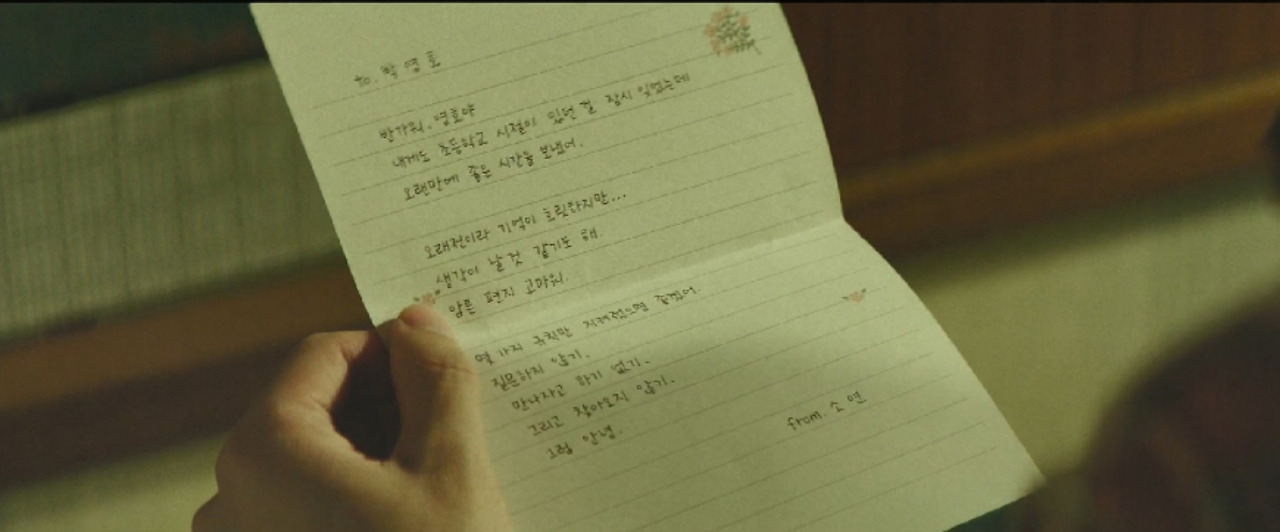 to. 박영호
반가워, 영호야
내게도 초등학교 시절이 있던 걸 잠시 잊었는데
오랜만에 좋은 시간을 보냈어.
오래전이라 기억이 흐릿하지만...
생각이 날 것 같기도 해.
암튼 편지 고마워.
몇 가지 규칙만 지켜줬으면 좋겠어.
질문하지 않기.
만나자고 하기 없기.
그리고 찾아오지 않기.
그럼 안녕.
from. 소연